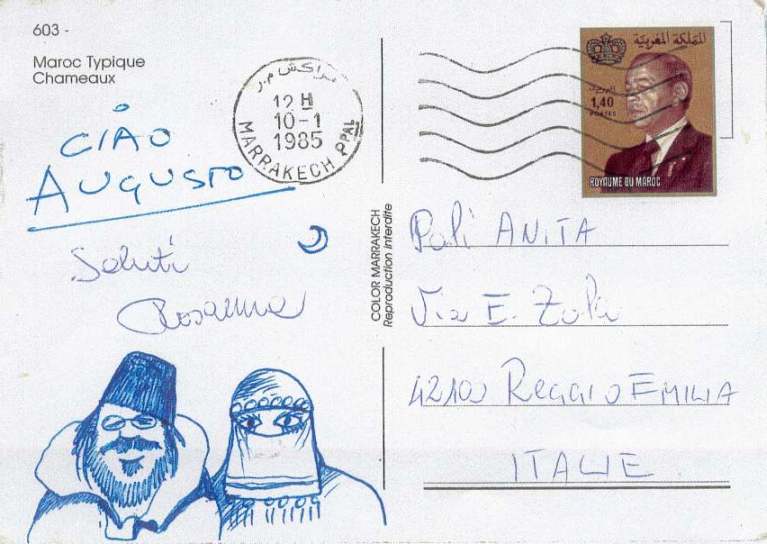 603 -
Maroc Typique
Chameaux
CIAO
AUGUSTO
Saluti
Rosanna
مراكش م.ر
12 H
10-1
1985
MARRAKECH PPAL
COLOR MARRAKECH
Reproduction interdite
المملكة المغربية
البريد
1,40
POSTES
ROYAUME DU MAROC
Poli ANITA
Via E. Zola
42100 REGGIO EMILIA
ITALIE